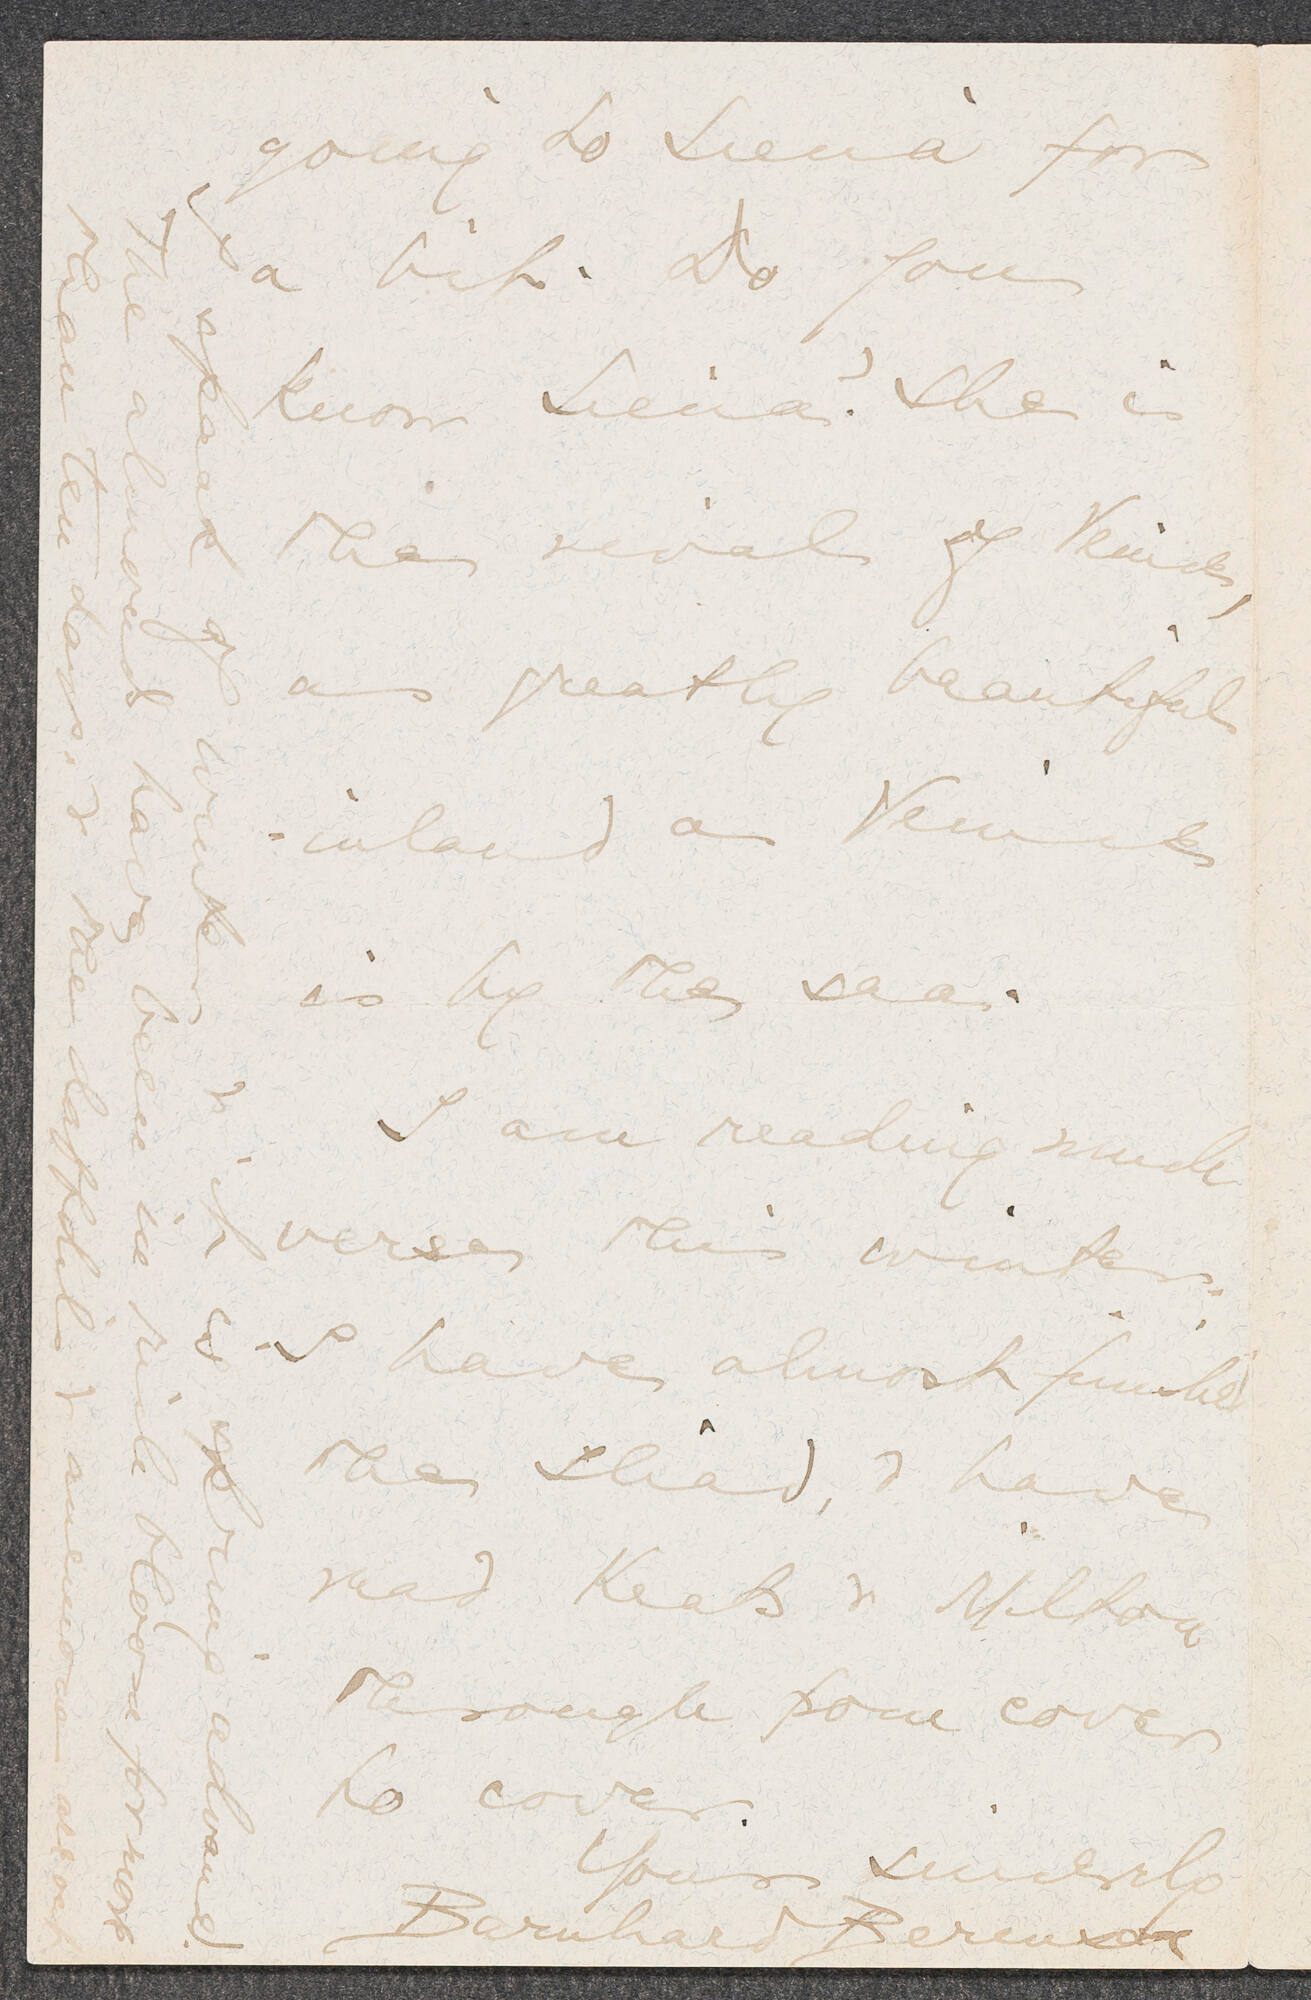 going to Siena for
a bit. Do you
know Siena? She is
the rival of Venice,
as greatly beautiful
inland as Venice
is by the sea.
I am reading much
verse this winter.
I have almost finished
the Iliad, & have
read Keats & Milton
through from cover
to cover.
Yours sincerely
Bernhard Berenson
I speak of winter, & it is spring advanced.
The almonds have been in rich bloom for more
than ten days, & the daffodils & anemones are out